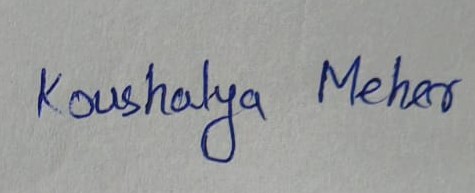 Koushalya Meher